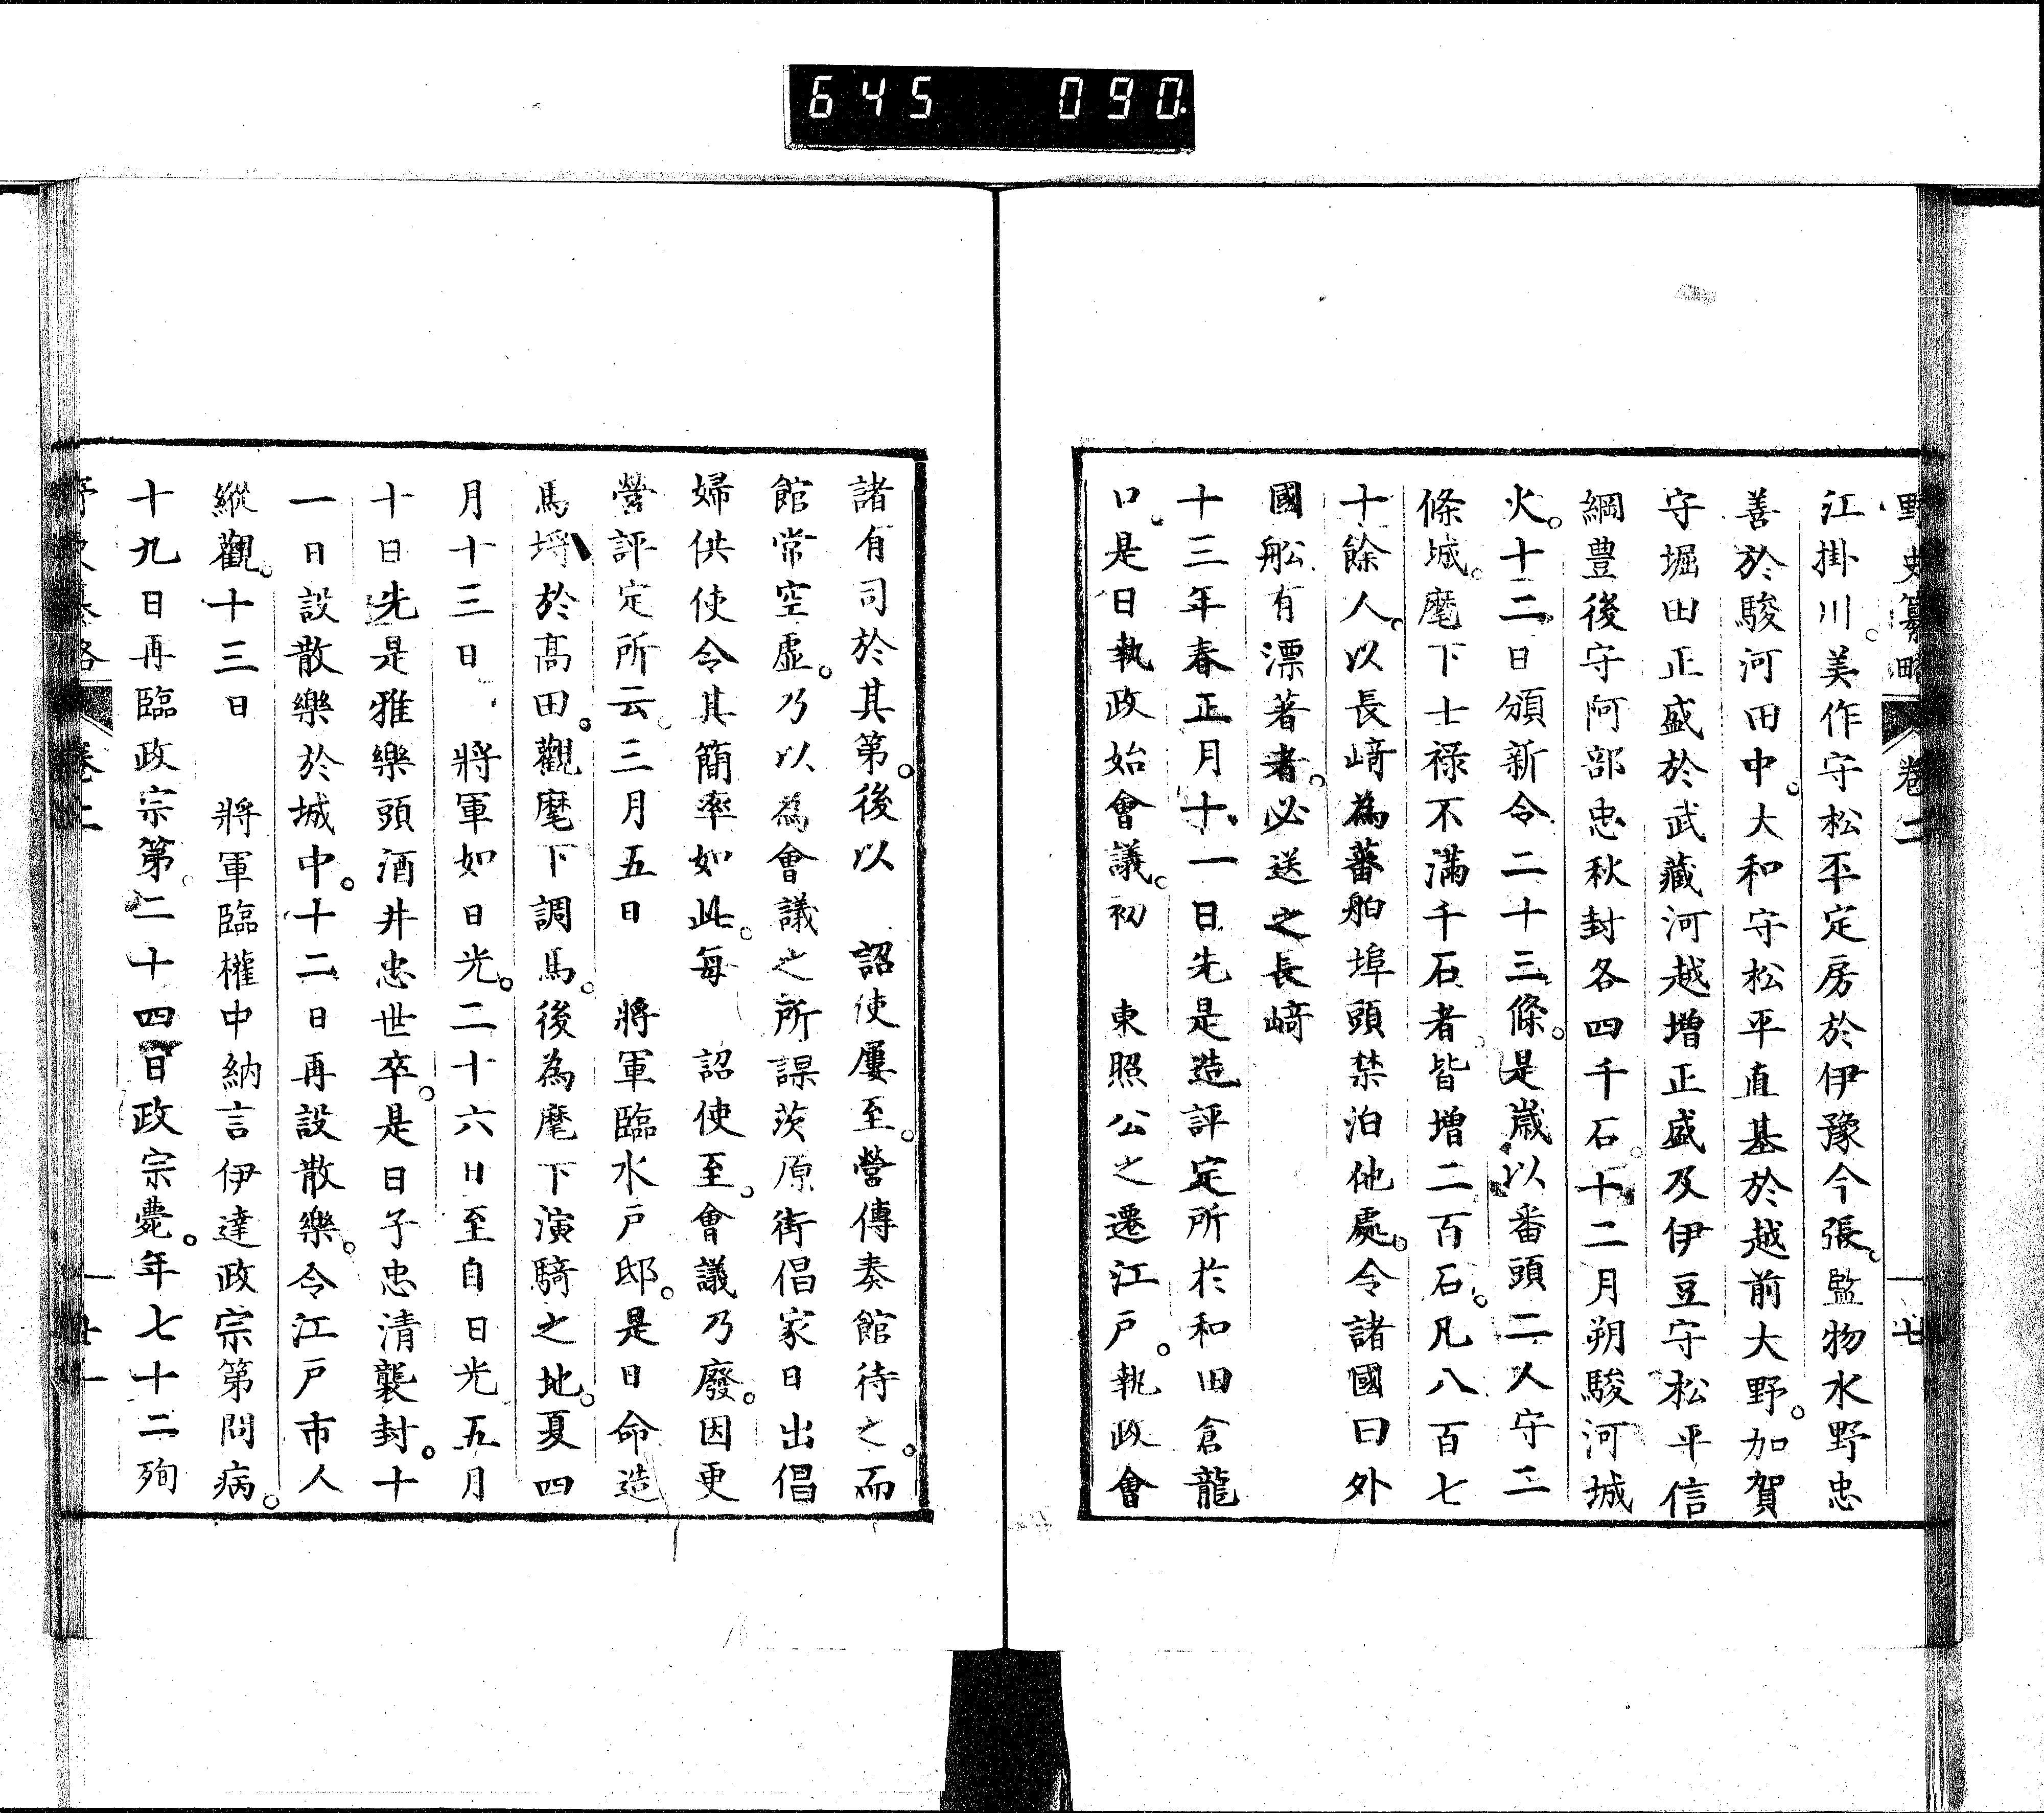 645 090
野史纂略 卷二
江掛川。美作守松平定房於伊豫今張。監物水野忠
善於駿河田中。大和守松平直基於越前大野。加賀
守堀田正盛於武藏河越增正盛及伊豆守松平信
綱豊後守阿部忠秋封各四千石。十二月朔駿河城
火。十二日頒新令二十三條。是歲以番頭二人守二
條城。麾下士祿不滿千石者皆增二百石。凡八百七
十餘人。以長﨑為蕃舶埠頭禁泊他處。令諸國曰外
國舩有漂著者。必送之長﨑
十三年春正月十一日先是造評定所於和田倉龍
口。是日執政始會議。初 東照公之遷江戶。執政會
諸有司於其第。後以 詔使屢至。營傳奏館待之。而
館常空虛。乃以為會議之所謀茨原街倡家日出倡
婦供使令其簡率如此。每 詔使至。會議乃廢。因更
營評定所云。三月五日 將軍臨水戶邸。是日命造
馬埒於髙田。觀麾下調馬。後為麾下演騎之地。夏四
月十三日 將軍如日光。二十六日至自日光五月
十日先是雅樂頭酒井忠世卒。是日子忠清襲封。十
一日設散樂於城中。十二日再設散樂。令江戶市人
縱觀。十三日 將軍臨權中納言伊達政宗第問病。
十九日再臨政宗第。二十四日政宗薨。年七十二殉
卷二